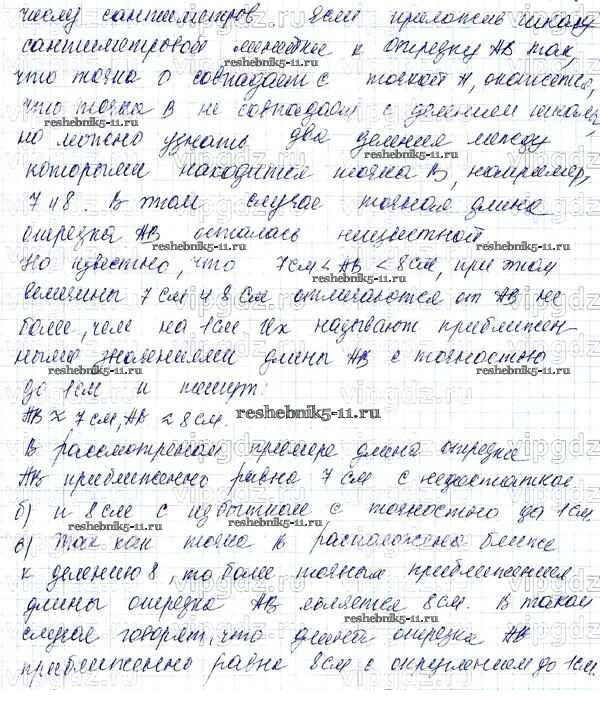 числу сантиметров. Если приложить шкалу
сантиметровой линейки к отрезку АВ так,
что точка 0 совпадает с точкой А, окажется,
что точка В не совпадает с делением шкалы,
reshebnik5-11.ru
reshebnik5-11.ru
но можно узнать два деления между
которыми находится точка В, например,
7 и 8. В этом случае точная длина
отрезка АВ осталась неизвестной
reshebnik5-11.ru
reshebnik5-11.ru
Но известно, что 7см < АВ < 8см, при этом
величины 7 см и 8 см отличаются от АВ не
более, чем на 1см. Их называют приближен-
ными значениями длины АВ с точностью
reshebnik5-11.ru
до 1см и пишут:
АВ ≈ 7 см, АВ ≈ 8 см.
reshebnik5-11.ru
В рассмотренном примере длина отрезка
АВ приближенно равна 7 см с недостатком
reshebnik5-11.ru
б) и 8см с избытком с точностью до 1см.
reshebnik5-11.ru
в) Так как точка В расположена ближе
к делению 8, то более точным приближением
длины отрезка АВ является 8см. В таком
reshebnik5-11.ru
случае говорят, что длина отрезка АВ
reshebnik5-11.ru
приближенно равна 8см с округлением до 1см.
vipgdz.ru